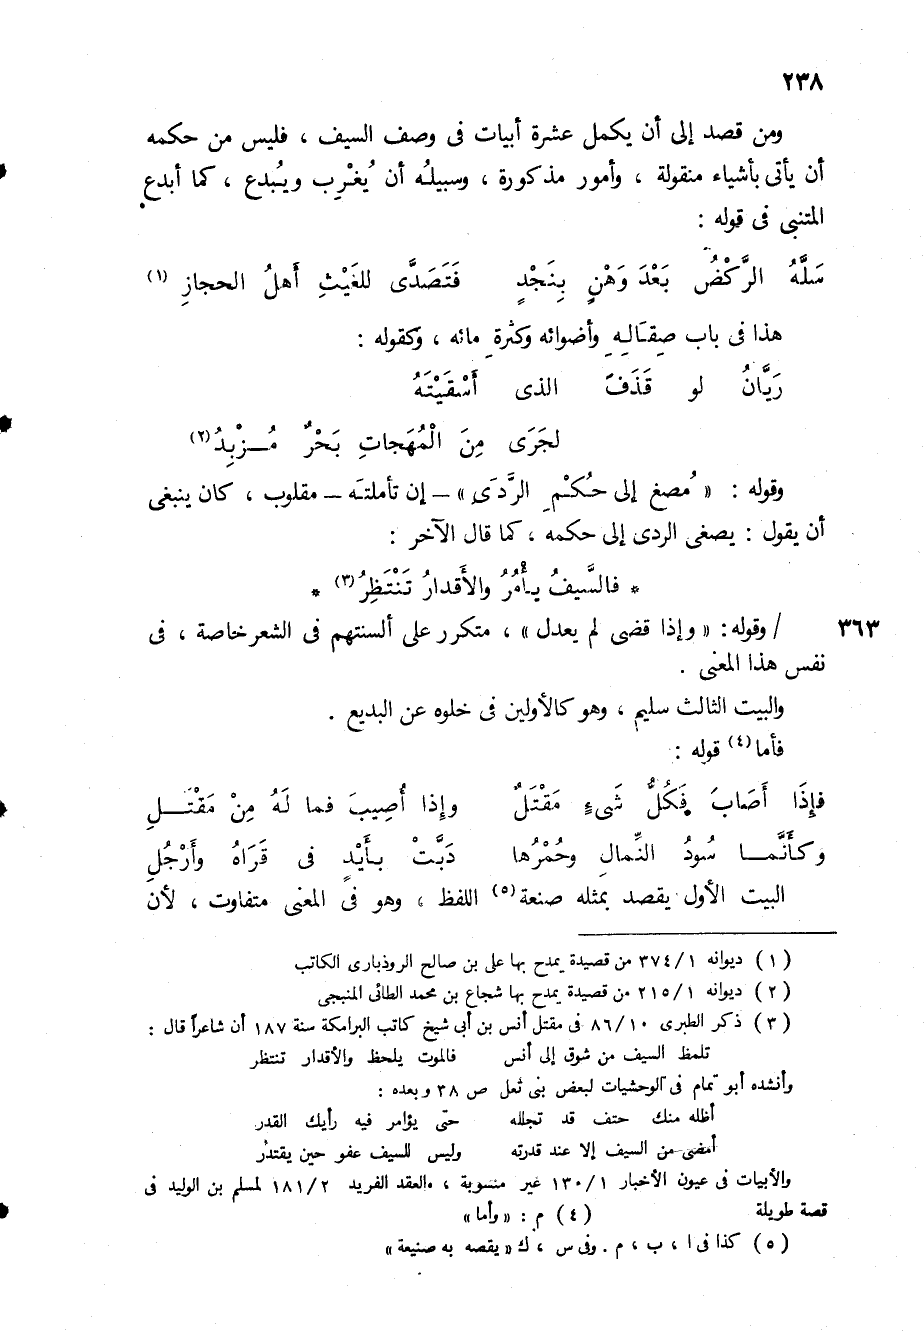 ٢٣٨
ومن قصد إلى أن يكمل عشرة أبيات فى وصف السيف ، فليس من حكمه
أن يأتى بأشياء منقولة ، وأمور مذكورة ، وسبيلُه أن يُغْرِب ويُبدع ، كما أبدع
المتنبى فى قوله :
سَلَّهُ الرَّكْضُ بَعْدَ وَهْنٍ بِنَجْدٍ فَتَصَدَّى للغَيْثِ أهلُ الحجازِ (١)
هذا فى باب صِقَالِهِ وأضوائه وكثرةِ مائه ، وكقوله :
رَيَّانُ لو قَذَفَ الذى أَسْقَيْتَهُ
لجَرَى مِنَ الْمُهَجاتِ بَحْرٌ مُـزْبِدُ (٢)
وقوله : « مُصغ إلى حُكْمِ الرَّدَى » – إن تأملتَه – مقلوب ، كان ينبغى
أن يقول : يصغى الردى إلى حكمه ، كما قال الآخر :
* فالسَّيفُ يأْمُرُ والأَقدارُ تَنْتَظِرُ (٣) *
٣٦٣ / وقوله: « وإذا قضى لم يعدل » ، متكرر على ألسنتهم فى الشعر خاصة ، فى
نفس هذا المعنى .
والبيت الثالث سليم ، وهو كالأولين فى خلوه عن البديع .
فأما (٤) قوله :
فإِذَا أَصَابَ فَكُلُّ شَىءٍ مَقْتَلٌ وإذا أُصِيبَ فما لَهُ مِنْ مَقْتَـلِ
وكأَنَّمـا سُودُ النِّمالِ وحُمْرُها دَبَّتْ بأَيْدٍ فى قَرَاهُ وأَرْجُلِ
البيت الأول يقصد بمثله صنعة (٥) اللفظ ، وهو فى المعنى متفاوت ، لأن
(١) ديوانه ٣٧٤/١ من قصيدة يمدح بها على بن صالح الروذبارى الكاتب
(٢) ديوانه ٢١٥/١ من قصيدة يمدح بها شجاع بن محمد الطائى المنبجى
(٣) ذكر الطبرى ٨٦/١٠ فى مقتل أنس بن أبى شيخ كاتب البرامكة سنة ١٨٧ أن شاعراً قال :
تلمظ السيف من شوق إلى أنس فالموت يلحظ والأقدار تنتظر
وأنشده أبو تمام فى الوحشيات لبعض بنى ثعل ص ٣٨ وبعده :
أظله منك حتف قد تجلله حتى يؤامر فيه رأيك القدر
أمضى من السيف إلا عند قدرته وليس للسيف عفو حين يقتدر
والأبيات فى عيون الأخبار ١٣٠/١ غير منسوبة ، والعقد الفريد ١٨١/٢ لمسلم بن الوليد فى
قصة طويلة (٤) م : « وأما »
(٥) كذا فى ا ، ب ، م . وفى س ، ك « يقصه به صنيعة »